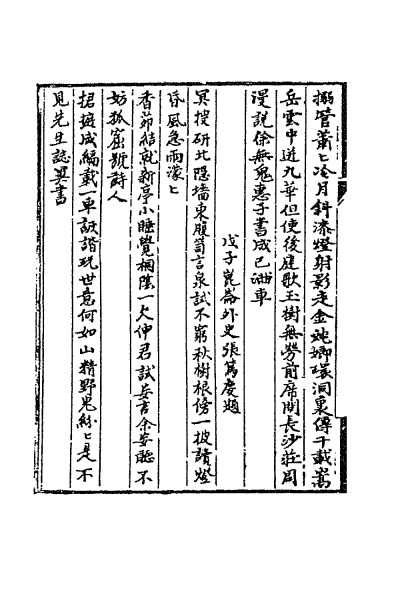 搦管蕭〻冷月斜漆燈射影走金蛇嫏嬛洞裏傳千載嵩
岳雲中迸九華但使後庭歌玉樹無勞前席問長沙莊周
漫說徐無鬼惠子書成已滿車
戊子崑崙外史張篤慶題
冥搜研北隱墻東腹笥言泉試不窮秋樹根傍一披讀燈
昏風急雨濛〻
香茆結就新亭小睡覺桐陰一欠伸君試妄言余妄聽不
妨狐窟號詩人
捃摭成編載一車詼諧玩世意何如山精野鬼紛〻是不
見先生誌異書